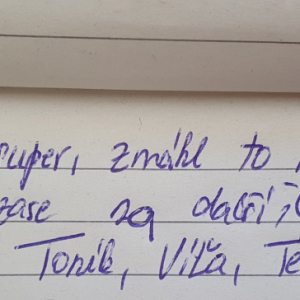 super, zmákl to,
zase za další,
Toník, Víťa, Te